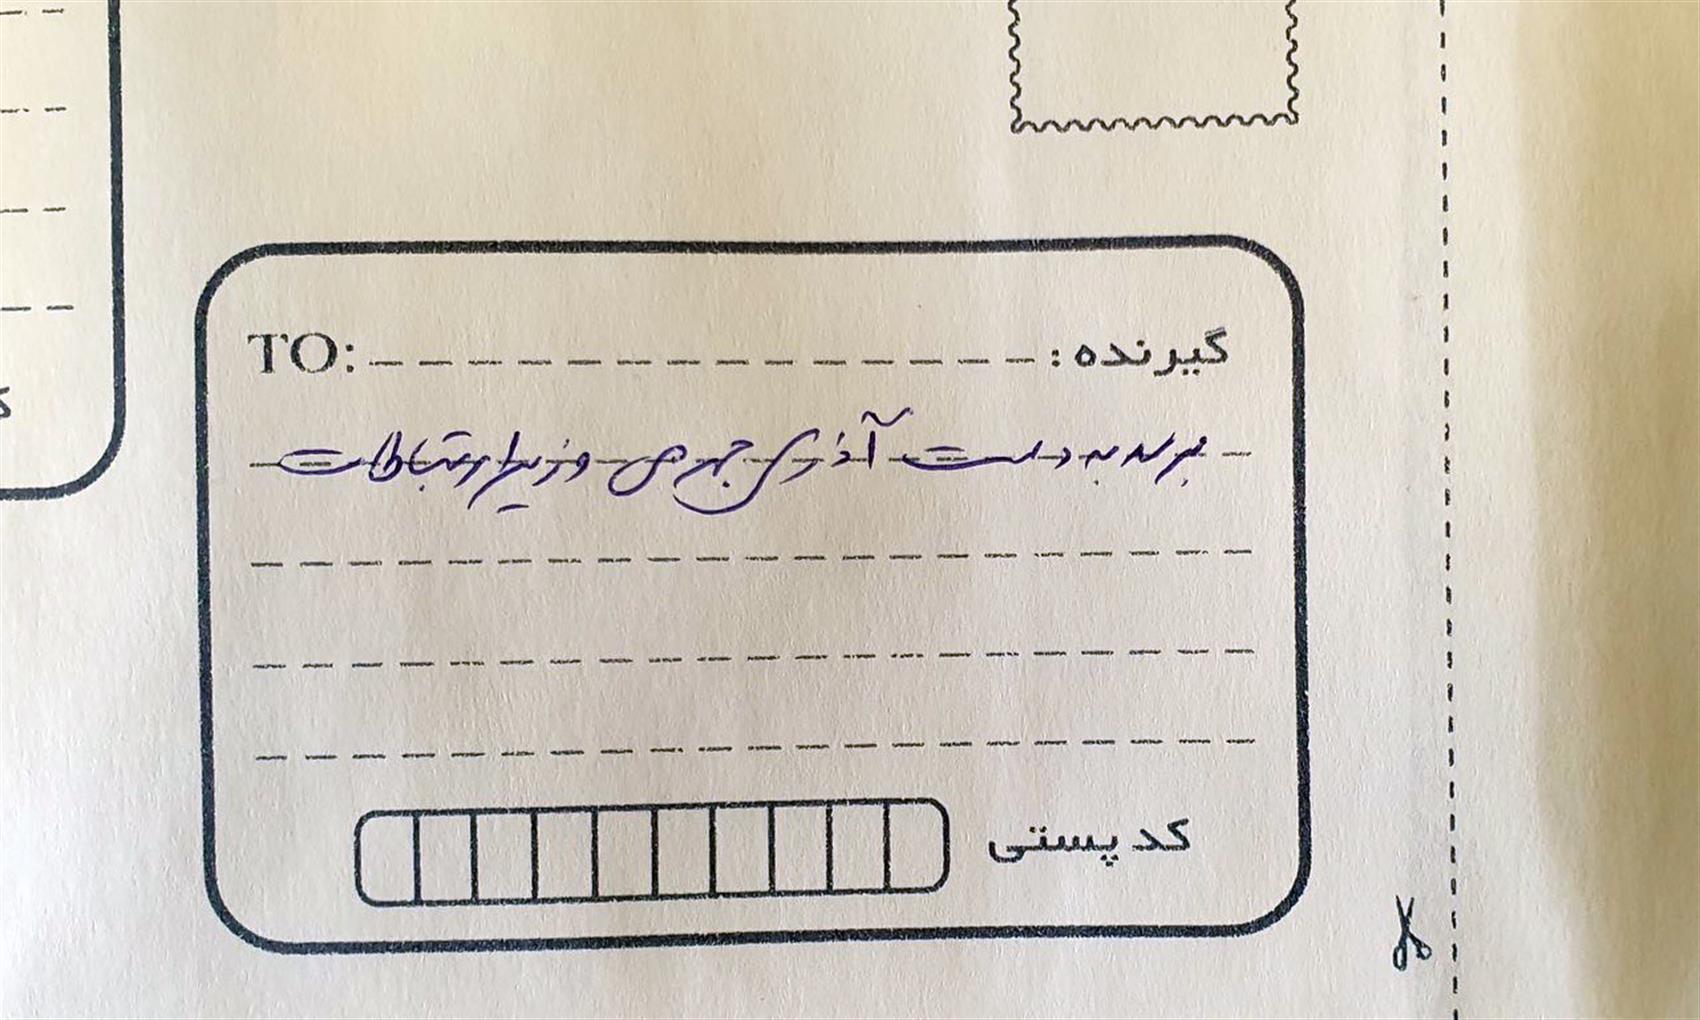 TO: گیرنده :
برسد به دست آذری جهرمی وزیر ارتباطات
کد پستی